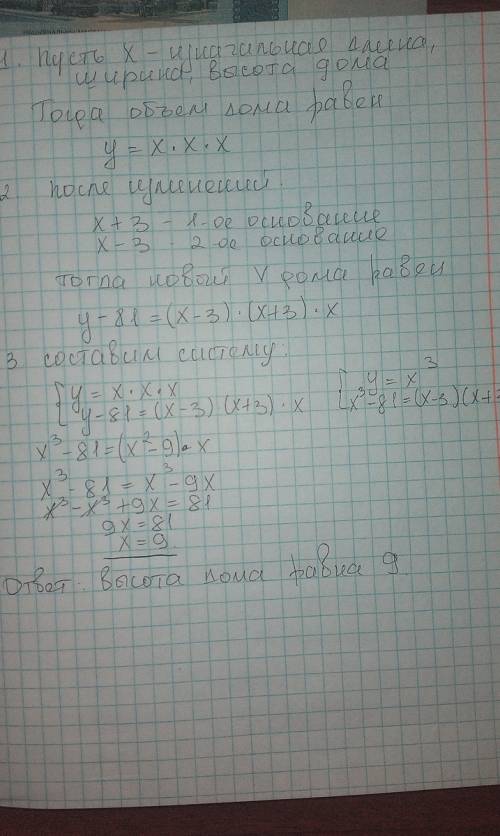 1. Пусть x - изначальная длина,
ширина, высота дома
Тогда объем дома равен
y = x · x · x
2 после изменений.
x+3 - 1-ое основание
x-3 - 2-ое основание
Тогда новый V дома равен
y-81=(x-3)·(x+3)·x
3 составим систему:
{y = x·x·x
y-81=(x-3)(x+3)·x
{y = x³
x³-81=(x-3)(x+
x³-81=(x²-9)·x
x³-81 = x³-9x
x³-x³+9x = 81
9x=81
x=9
Ответ: высота дома равна 9